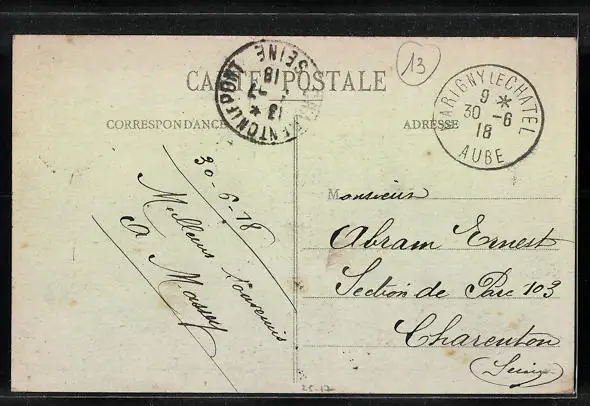 CARTE POSTALE
13
CHARENTON LE PONT
SEINE
13 *
1 - 7
18
MARIGNY LE CHATEL
9 *
30 - 6
18
AUBE
CORRESPONDANCE
ADRESSE
30-6-18
Meilleurs Souvenirs
A. Massey
Monsieur
Abram Ernest
Section de Parc 103
Charenton
(Seine)
25-17